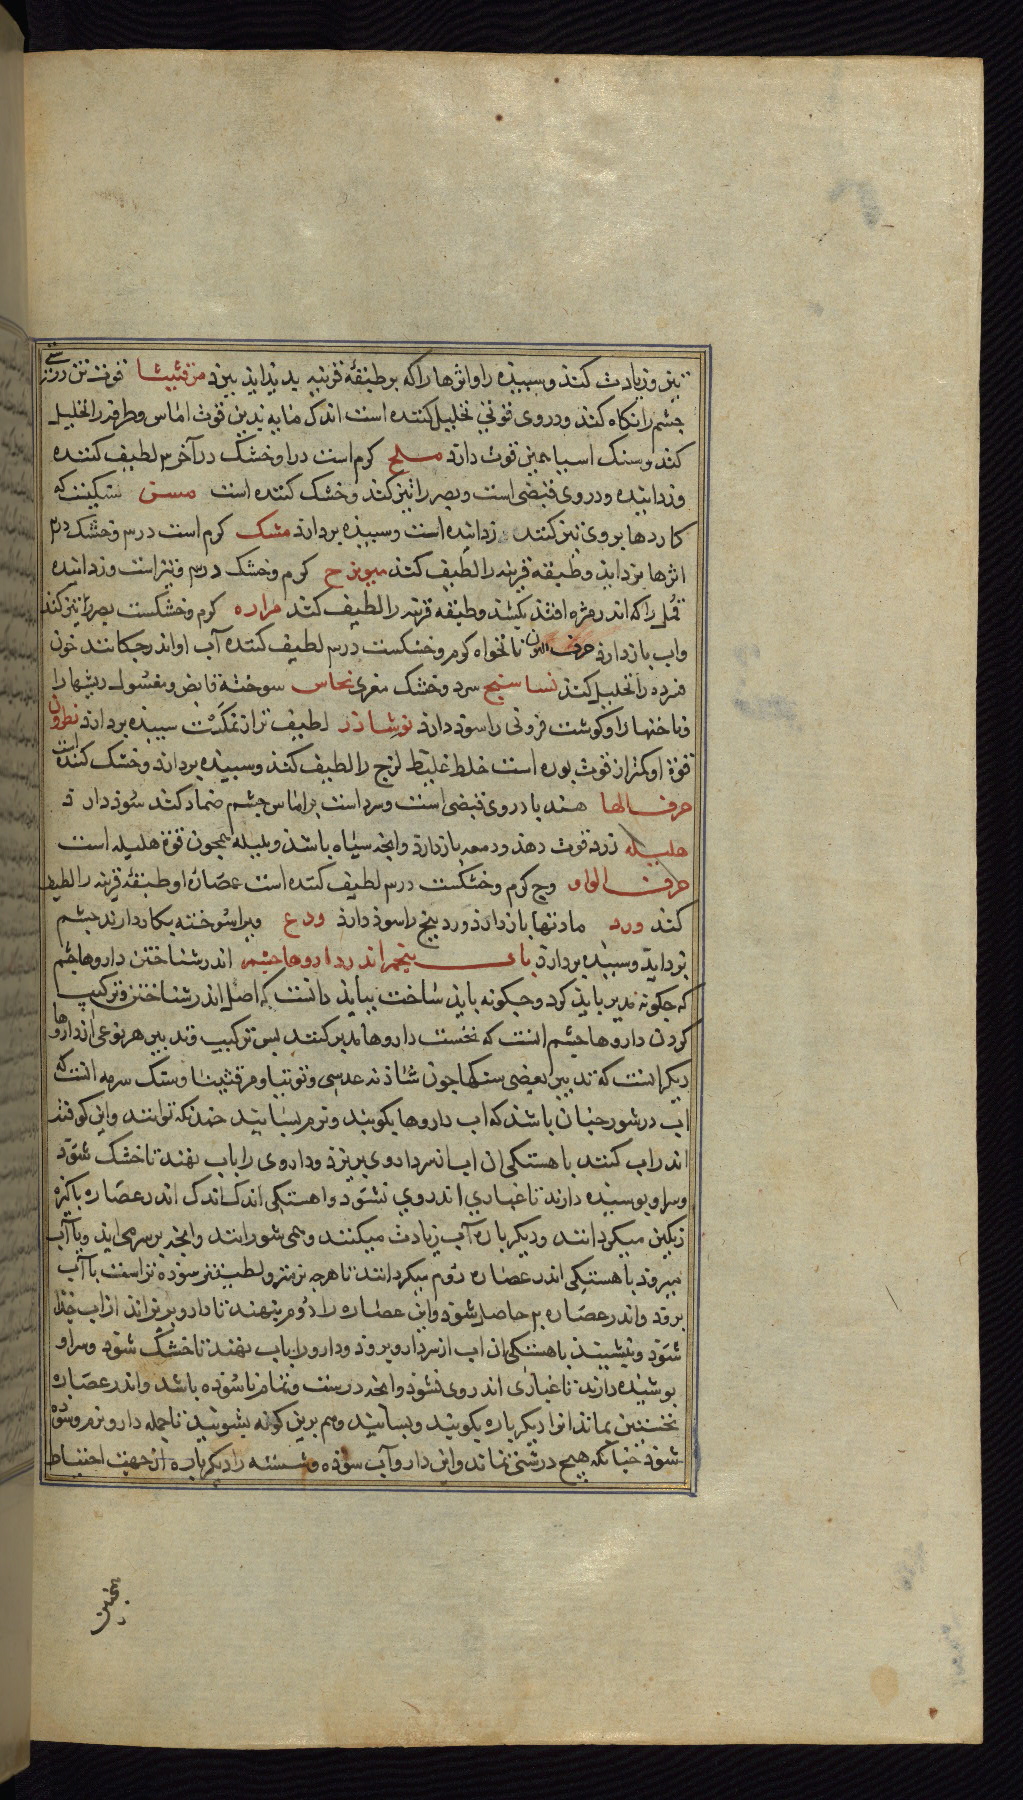 تیز و زیادت کند و سبیذه را و اثرها را که بر طبقهٔ قرنیه بدید اید ببرد مرقشیثا قوت تن درستی
جشم را نکاه کند و در وی قوتی تحلیل کننده است اندک مایه بدین قوت اماس و طرفه را تحلیل
کند و سنک اسیا همین قوت دارد ملح کرم است در ا و خشک در آخر س لطیف کننده
و زداینده و در وی قبضی است و بصر را تیز کند و خشک کننده است مسن سنکیست که
کاردها بر وی تیز کنند زداینده است و سبیذه بردارد مشک کرم است در س و خشک در س
اثرها بزداید و طبقه قرنیه را لطیف کند میویزج کرم و خشک در س و تیز است و زداینده
قمل را که اندر مژه افتد بکشد و طبقه قرنیه را لطیف کند مراره کرم و خشکست بصر را تیز کند
و اب بازدارد حرف النون نانخواه کرم و خشکست در س لطیف کننده آب او اندر جکانند خون
فسرده را تحلیل کند نساستج سرد و خشک مغری نحاس سوخته قابض و مغسول ریشها را
و ناخنها را و کوشت فزونی را سوذ دارد نوشاذر لطیف تر از نمکست سبیذه بردارد نطرون
قوة او کمتر از قوت بوره است خلط غلیظ لزج را لطیف کند و سبیذه بردارد و خشک کننده است
حرف الها هندبا در وی قبضی است و سرد است بر اماس جشم ضماد کنند سوذ دارد
هلیله زرد قوت دهد و دمعه بازدارد و انجه سیاه باشد و بلیله همجون قوة هلیله است
حرف الواو وج کرم و خشکست در س لطیف کننده است عصاره او طبقهٔ قرنیه را لطیف
کند ورد مادتها بازدارد و ردینج را سوذ دارد ودع ویرا سوخته بکار دارند جشم
بزداید و سبیذه بردارد باب پنجم اندر داروها جشم اندر شناختن داروها جشم
که جکونه تدبیر باید کرد و جکونه باید ساخت بباید دانست که اصل اندر شناختن و ترکیب
کردن داروها جشم انست که نخست داروها تدبیر کنند بس ترکیب و تدبیر هر نوعی از داروها
دیکر انست که تدبیر بعضی سنکها جون شاذنه عدسی و توتیا و مرقشیثا و سنک سرمه انست که
اب در شور جنان باشد که اب داروها بکوبند و نرم بسایند جندانکه توانند و این کوفته
اندر اب کنند باهستکی ان اب از سر داروی بریزند و داروی را باب نهند تا خشک شوذ
و سر او بوسیده دارند تا غباری اندر وی نشوذ و اهستکی اندک اندک اندر عصاره باکیزه
زیکین میکردانند و دیکر باره آب زیادت میکنند و همی شورانند و انجه بر سر همی اید و با آب
میروذ باهستکی اندر عصاره دوم میکردانند تا هرجه نرمتر و لطیفتر سوذه تر است با آب
بروذ و اندر عصاره ۲ حاصل شوذ و این عصاره را دوم بنهند تا دارو بر تر اند از اب جدا
شوذ و بنشیند باهستکی ان اب از سر دارو بروذ و دارو را باب نهند تا خشک شوذ و سر او
بوشیده دارند تا غباری اندر وی نشوذ و انجه درست و تمام ناسوذه باشد و اندر عصاره
نخستین بماند انرا دیکر باره بکوبند و بسایند و هم برین کونه بشویند تا جمله دارو نرم و سوذه
شوذ جنانکه هیج درشتی نماند و این دارو آب سوذه و شسته را دیکر باره از جهت احتیاط